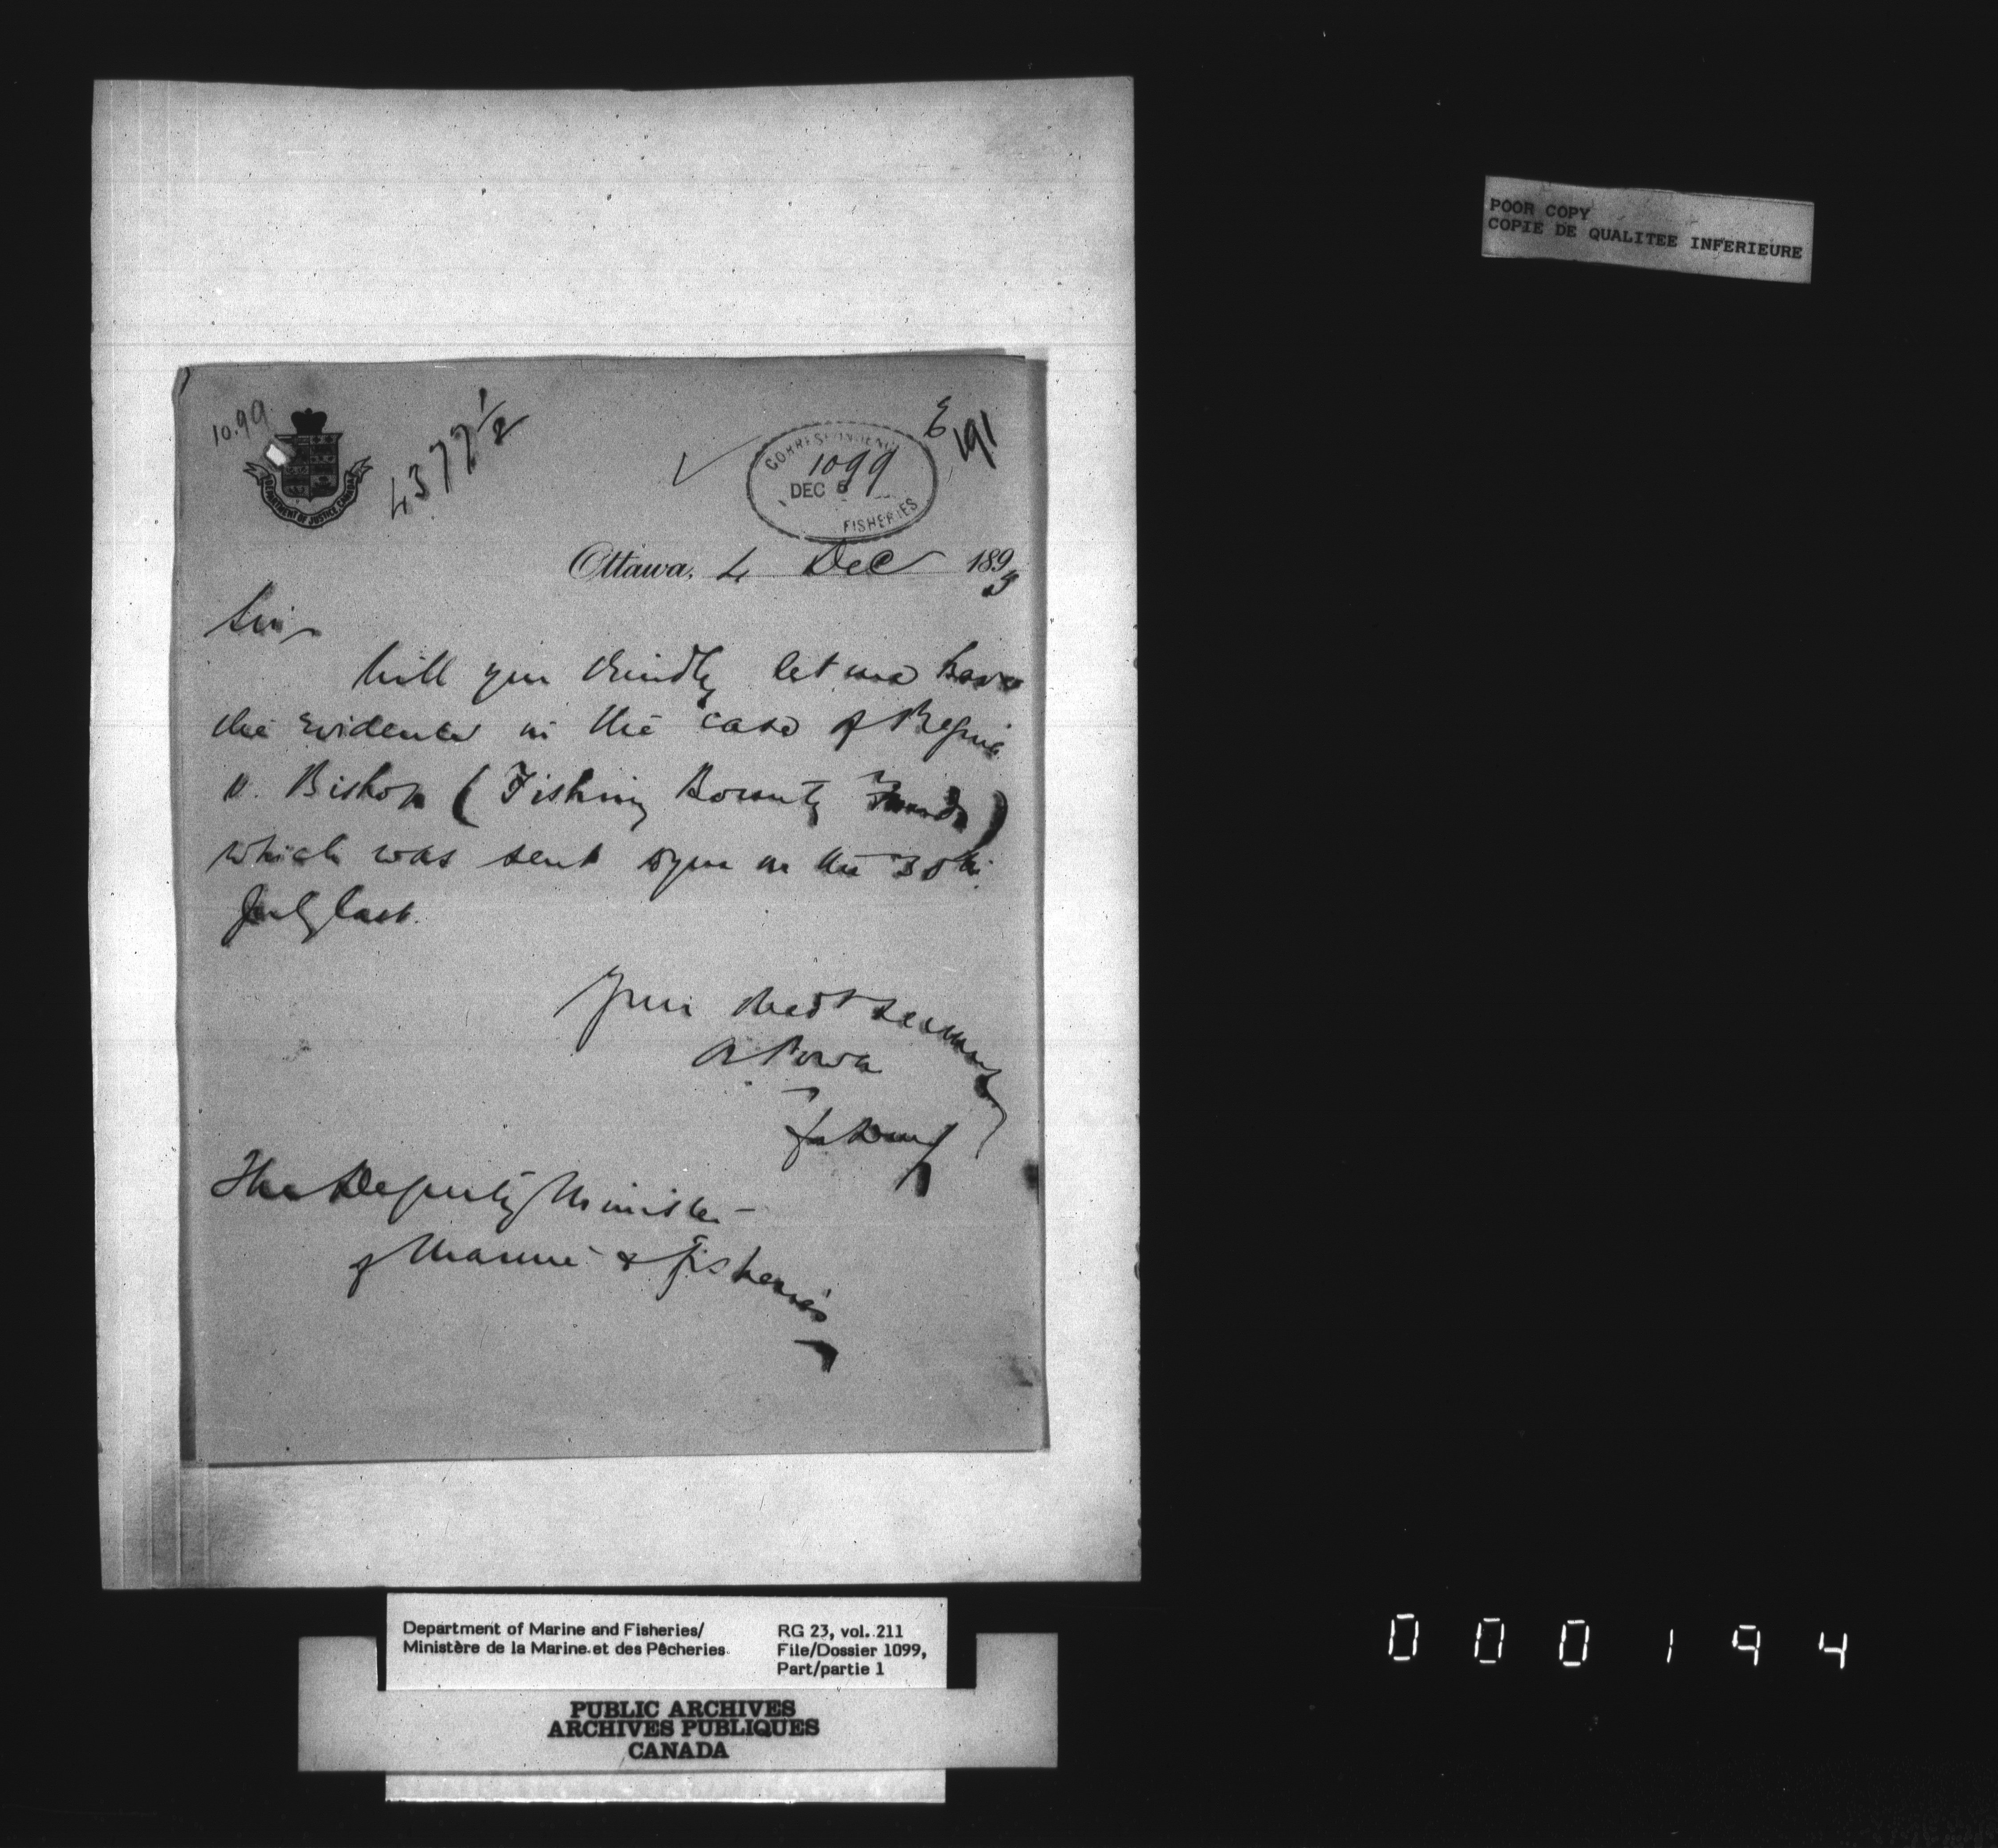 POOR COPY
COPIE DE QUALITEE INFERIEURE
10.99
4377 1/2
E 191
CORRESPONDENCE
1099
DEC 5
FISHERIES
DEPARTMENT OF JUSTICE CANADA
Ottawa, 4 Dec 1893
Sir
Will you kindly let me have
the evidence in the case of Regina
v. Bishop (Fishing Bounty Frauds)
which was sent to you on the 30th
July last.
Your obedt servant
A Power
for D.M.J.
The Deputy Minister
of Marine & Fisheries
Department of Marine and Fisheries/
Ministère de la Marine et des Pêcheries
RG 23, vol. 211
File/Dossier 1099,
Part/partie 1
PUBLIC ARCHIVES
ARCHIVES PUBLIQUES
CANADA
000194